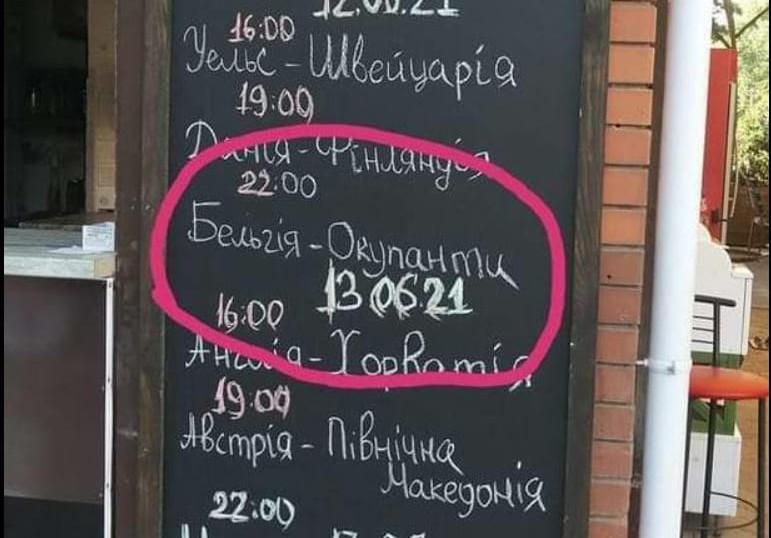 12.06.21
16:00
Уельс - Швейцарія
19:00
Данія - Фінляндія
22:00
Бельгія - Окупанти
13.06.21
16:00
Англія - Хорватія
19:00
Австрія - Північна
Македонія
22:00